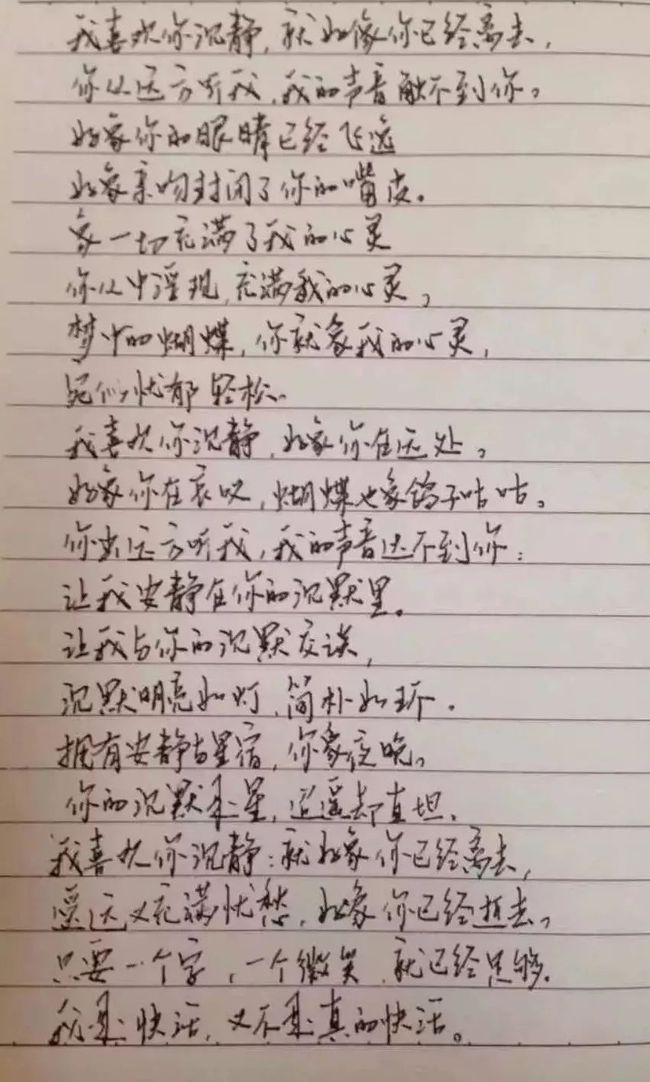 我喜欢你沉静，就好像你已经离去，
你从远方听我，我的声音触不到你。
好象你的眼睛已经飞逸
好象亲吻封闭了你的嘴皮。
象一切充满了我的心灵
你从中浮现，充满我的心灵，
梦中的蝴蝶，你就象我的心灵，
宛似忧郁轻松。
我喜欢你沉静，好象你在远处。
好象你在哀叹，蝴蝶也象鸽子咕咕。
你从远方听我，我的声音达不到你：
让我安静在你的沉默里。
让我与你的沉默交谈，
沉默明亮如灯，简朴如环。
拥有安静与星宿，你象夜晚。
你的沉默是星，遥遥却直坦。
我喜欢你沉静：就好象你已经离去，
遥远又充满忧愁，好像你已经逝去。
只要一个字，一个微笑，就已经足够。
我是快活，又不是真的快活。